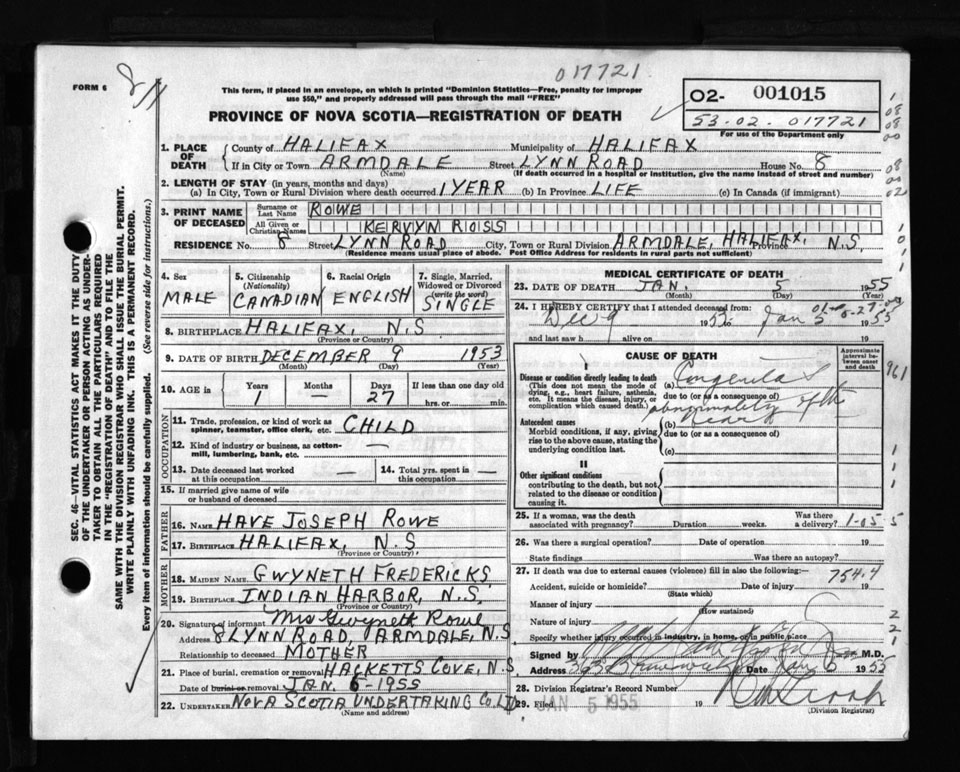 017721
FORM 6
8/11
This form, if placed in an envelope, on which is printed "Dominion Statistics—Free, penalty for improper
use $50," and properly addressed will pass through the mail "FREE"
PROVINCE OF NOVA SCOTIA—REGISTRATION OF DEATH
02- 001015
53-02-017721
For use of the Department only
1. PLACE OF DEATH County of HALIFAX Municipality of HALIFAX
If in City or Town ARMDALE Street LYNN ROAD House No. 8
(Name) (If death occurred in a hospital or institution, give the name instead of street and number)
2. LENGTH OF STAY (in years, months and days)
(a) In City, Town or Rural Division where death occurred 1 YEAR (b) In Province LIFE (c) In Canada (if immigrant)
3. PRINT NAME OF DECEASED Surname or Last Name ROWE
All Given or Christian Names KERVYN ROSS
RESIDENCE No. 8 Street LYNN ROAD City, Town or Rural Division ARMDALE, HALIFAX, Province N.S.
(Residence means usual place of abode. Post Office Address for residents in rural parts not sufficient)
4. Sex MALE
5. Citizenship (Nationality) CANADIAN
6. Racial Origin ENGLISH
7. Single, Married, Widowed or Divorced (write the word) SINGLE
8. BIRTHPLACE HALIFAX, N.S
(Province or Country)
9. DATE OF BIRTH DECEMBER 9 1953
(Month) (Day) (Year)
10. AGE in Years 1 Months — Days 27 If less than one day old hrs. or min.
OCCUPATION
11. Trade, profession, or kind of work as spinner, teamster, office clerk, etc. CHILD
12. Kind of industry or business, as cotton-mill, lumbering, bank, etc. —
13. Date deceased last worked at this occupation —
14. Total yrs. spent in this occupation —
15. If married give name of wife or husband of deceased
FATHER
16. NAME HAVE JOSEPH ROWE
17. BIRTHPLACE HALIFAX, N.S
(Province or Country)
MOTHER
18. MAIDEN NAME GWYNETH FREDERICKS
19. BIRTHPLACE INDIAN HARBOR, N.S.
(Province or Country)
20. Signature of informant Mrs Gwyneth Rowe
Address 8 LYNN ROAD, ARMDALE, N.S
Relationship to deceased MOTHER
21. Place of burial, cremation or removal HACKETTS COVE, N.S
Date of burial or removal JAN. 6-1955
22. UNDERTAKER NOVA SCOTIA UNDERTAKING CO. LTD
(Name and address)
MEDICAL CERTIFICATE OF DEATH
23. DATE OF DEATH JAN. 5 1955
(Month) (Day) (Year)
24. I HEREBY CERTIFY that I attended deceased from:
Dec 9 1953 Jan 5 1955
and last saw h alive on 19
CAUSE OF DEATH
Approximate interval between onset and death
I
Disease or condition directly leading to death
(This does not mean the mode of dying, e.g., heart failure, asthenia, etc. It means the disease, injury, or complication which caused death.)
(a) Congenital
due to (or as a consequence of)
abnormality of the
Antecedent causes
Morbid conditions, if any, giving rise to the above cause, stating the underlying condition last.
(b) heart
due to (or as a consequence of)
(c)
II
Other significant conditions
contributing to the death, but not related to the disease or condition causing it.
961
25. If a woman, was the death associated with pregnancy? Duration weeks. Was there a delivery?
1-05-5
26. Was there a surgical operation? Date of operation 19
State findings Was there an autopsy?
27. If death was due to external causes (violence) fill in also the following:—
754.4
Accident, suicide or homicide? Date of injury 19
(State which)
Manner of injury
(How sustained)
Nature of injury
Specify whether injury occurred in industry, in home, or in public place
Signed by M.D.
Address Date Jan 6 1955
28. Division Registrar's Record Number
29. Filed JAN 5 1955 19
(Division Registrar)
SEC. 46—VITAL STATISTICS ACT MAKES IT THE DUTY
OF THE UNDERTAKER OR PERSON ACTING AS UNDER-
TAKER TO OBTAIN ALL THE PARTICULARS REQUIRED
IN THE "REGISTRATION OF DEATH" AND TO FILE THE
SAME WITH THE DIVISION REGISTRAR WHO SHALL ISSUE THE BURIAL PERMIT.
WRITE PLAINLY WITH UNFADING INK. THIS IS A PERMANENT RECORD.
Every item of information should be carefully supplied. (See reverse side for instructions.)